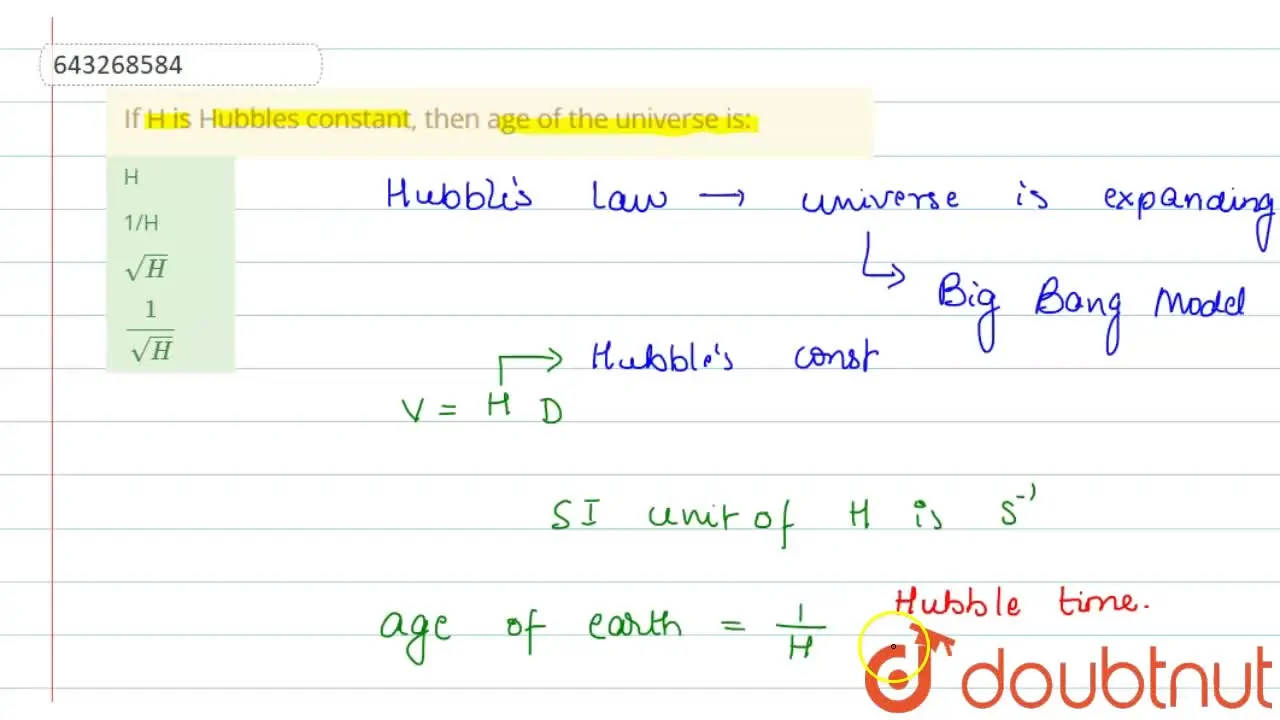 643268584
If H is Hubbles constant, then age of the universe is:
H
1/H
√H
1/√H
Hubble's law → universe is expanding
↳ Big Bang Model
→ Hubble's const
V = H D
SI unit of H is S⁻¹
age of earth = 1/H
Hubble time.
doubtnut